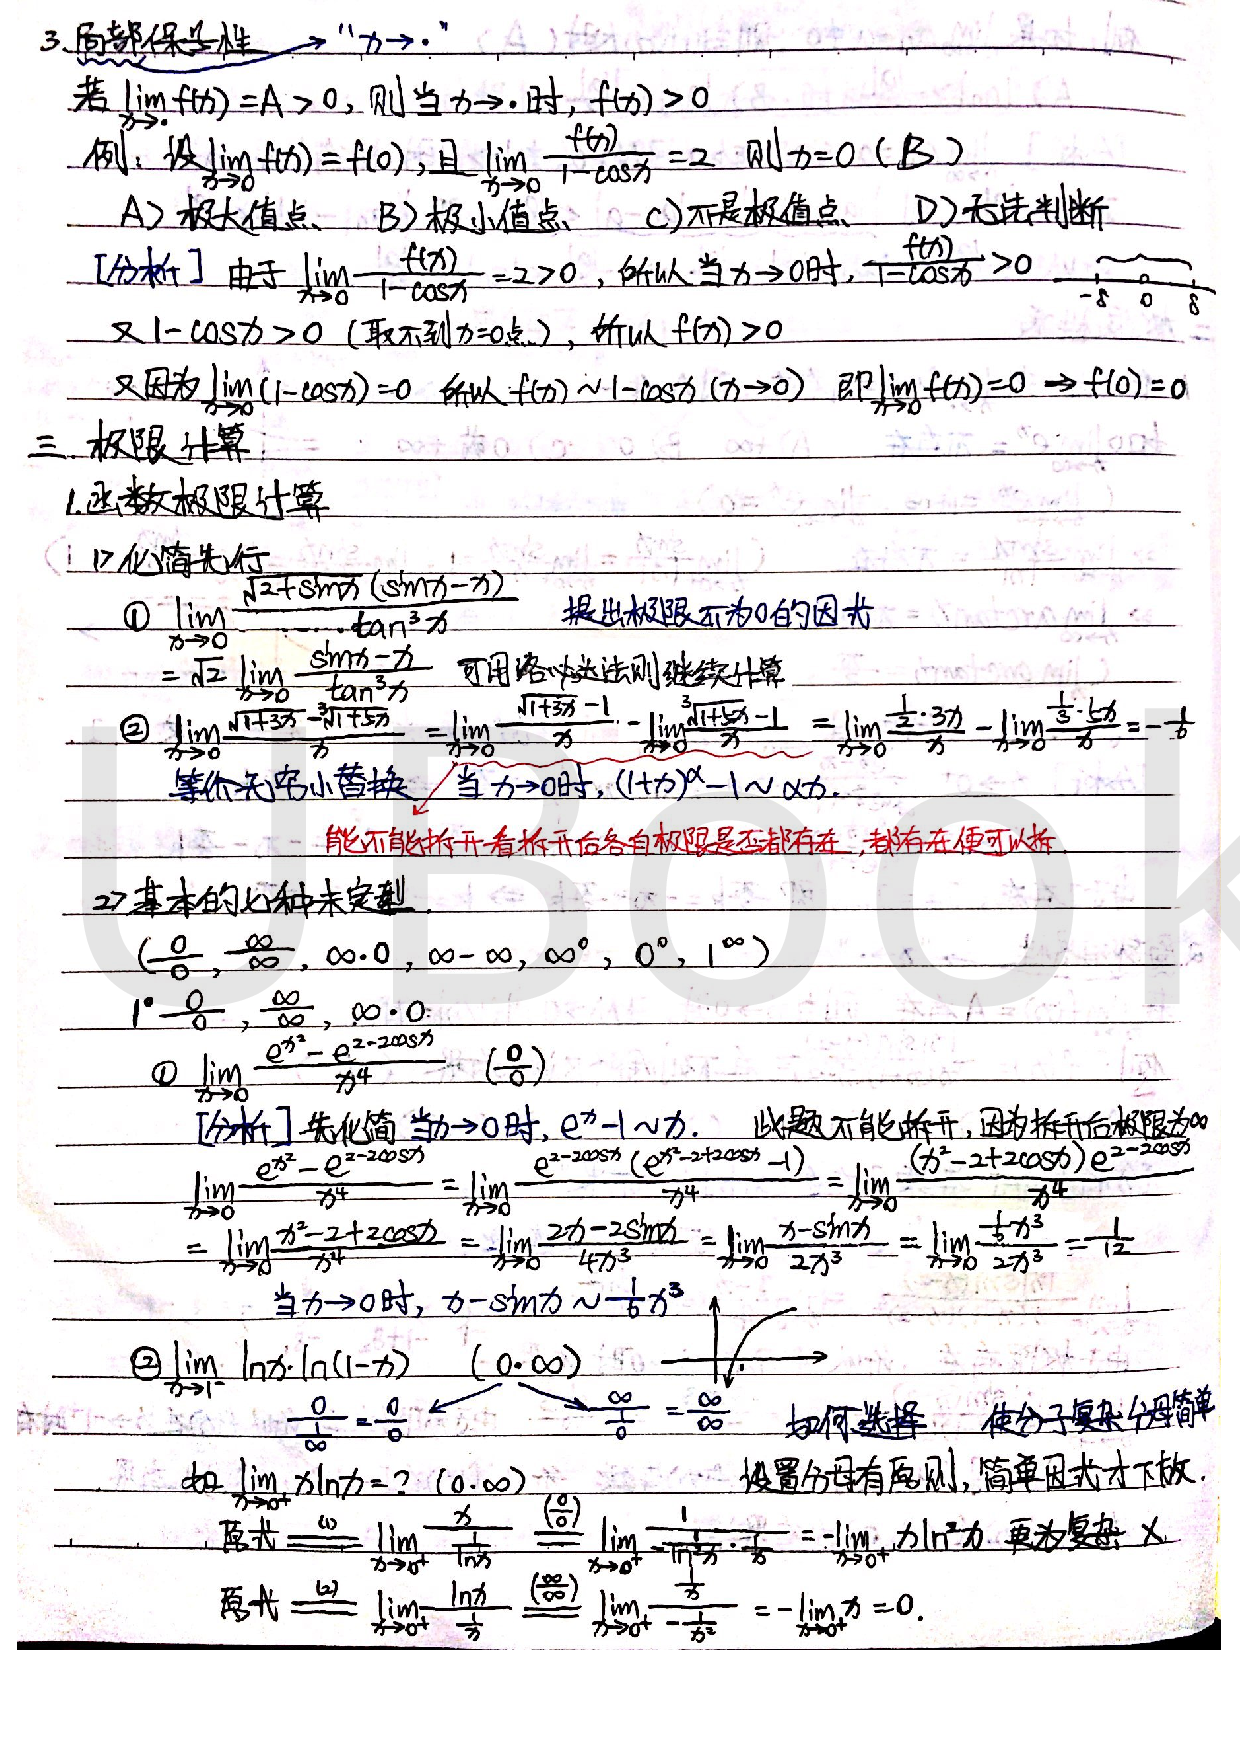 3. 局部保号性 → "x→·"
若 lim_{x→·} f(x) = A > 0, 则当 x→· 时, f(x) > 0
例: 设 lim_{x→0} f(x) = f(0), 且 lim_{x→0} f(x)/(1-cosx) = 2 则 x=0 ( B )
A) 极大值点、 B) 极小值点、 C) 不是极值点、 D) 无法判断
[分析] 由于 lim_{x→0} f(x)/(1-cosx) = 2 > 0, 所以当 x→0时, f(x)/(1-cosx) > 0 -δ 0 δ
又 1-cosx > 0 (取不到x=0点), 所以 f(x) > 0
又因为 lim_{x→0} (1-cosx) = 0 所以 f(x) ~ 1-cosx (x→0) 即 lim_{x→0} f(x) = 0 ⇒ f(0) = 0
三. 极限计算
1. 函数极限计算
1> 化简先行
① lim_{x→0} √(2+sinx) (sinx-x) / tan³x 提出极限不为0的因式
= √2 lim_{x→0} (sinx-x)/tan³x 可用洛必达法则继续计算
② lim_{x→0} (√(1+3x) - ³√(1+5x))/x = lim_{x→0} (√(1+3x) - 1)/x - lim_{x→0} (³√(1+5x) - 1)/x = lim_{x→0} (1/2·3x)/x - lim_{x→0} (1/3·5x)/x = -1/6
等价无穷小替换 当 x→0时, (1+x)^α - 1 ~ αx.
能不能拆开看拆开后各自极限是否都存在, 都存在便可以拆.
2> 基本的七种未定型.
(0/0, ∞/∞, ∞·0, ∞-∞, ∞⁰, 0⁰, 1^∞)
1° 0/0, ∞/∞, ∞·0
① lim_{x→0} (e^{x²} - e^{2-2cosx})/x⁴ (0/0)
[分析] 先化简 当x→0时, e^x - 1 ~ x. 此题不能拆开, 因为拆开后极限为∞
lim_{x→0} (e^{x²} - e^{2-2cosx})/x⁴ = lim_{x→0} e^{2-2cosx} (e^{x²-2+2cosx} - 1)/x⁴ = lim_{x→0} (x²-2+2cosx) e^{2-2cosx}/x⁴
= lim_{x→0} (x²-2+2cosx)/x⁴ = lim_{x→0} (2x-2sinx)/4x³ = lim_{x→0} (x-sinx)/2x³ = lim_{x→0} (1/6 x³)/2x³ = 1/12
当 x→0时, x-sinx ~ 1/6 x³
② lim_{x→1⁻} lnx·ln(1-x) (0·∞)
0/(1/∞) = 0/0 ∞/(1/0) = ∞/∞ 如何选择 使分子复杂分母简单
如 lim_{x→0⁺} xlnx = ? (0·∞) 设置分母有原则, 简单因式才下放.
原式 =(1)= lim_{x→0⁺} x/(1/lnx) =(0/0)= lim_{x→0⁺} 1/(-1/ln²x · 1/x) = -lim_{x→0⁺} xln²x 更为复杂 ×
原式 =(2)= lim_{x→0⁺} lnx/(1/x) =(∞/∞)= lim_{x→0⁺} (1/x)/(-1/x²) = -lim_{x→0⁺} x = 0.
UBook